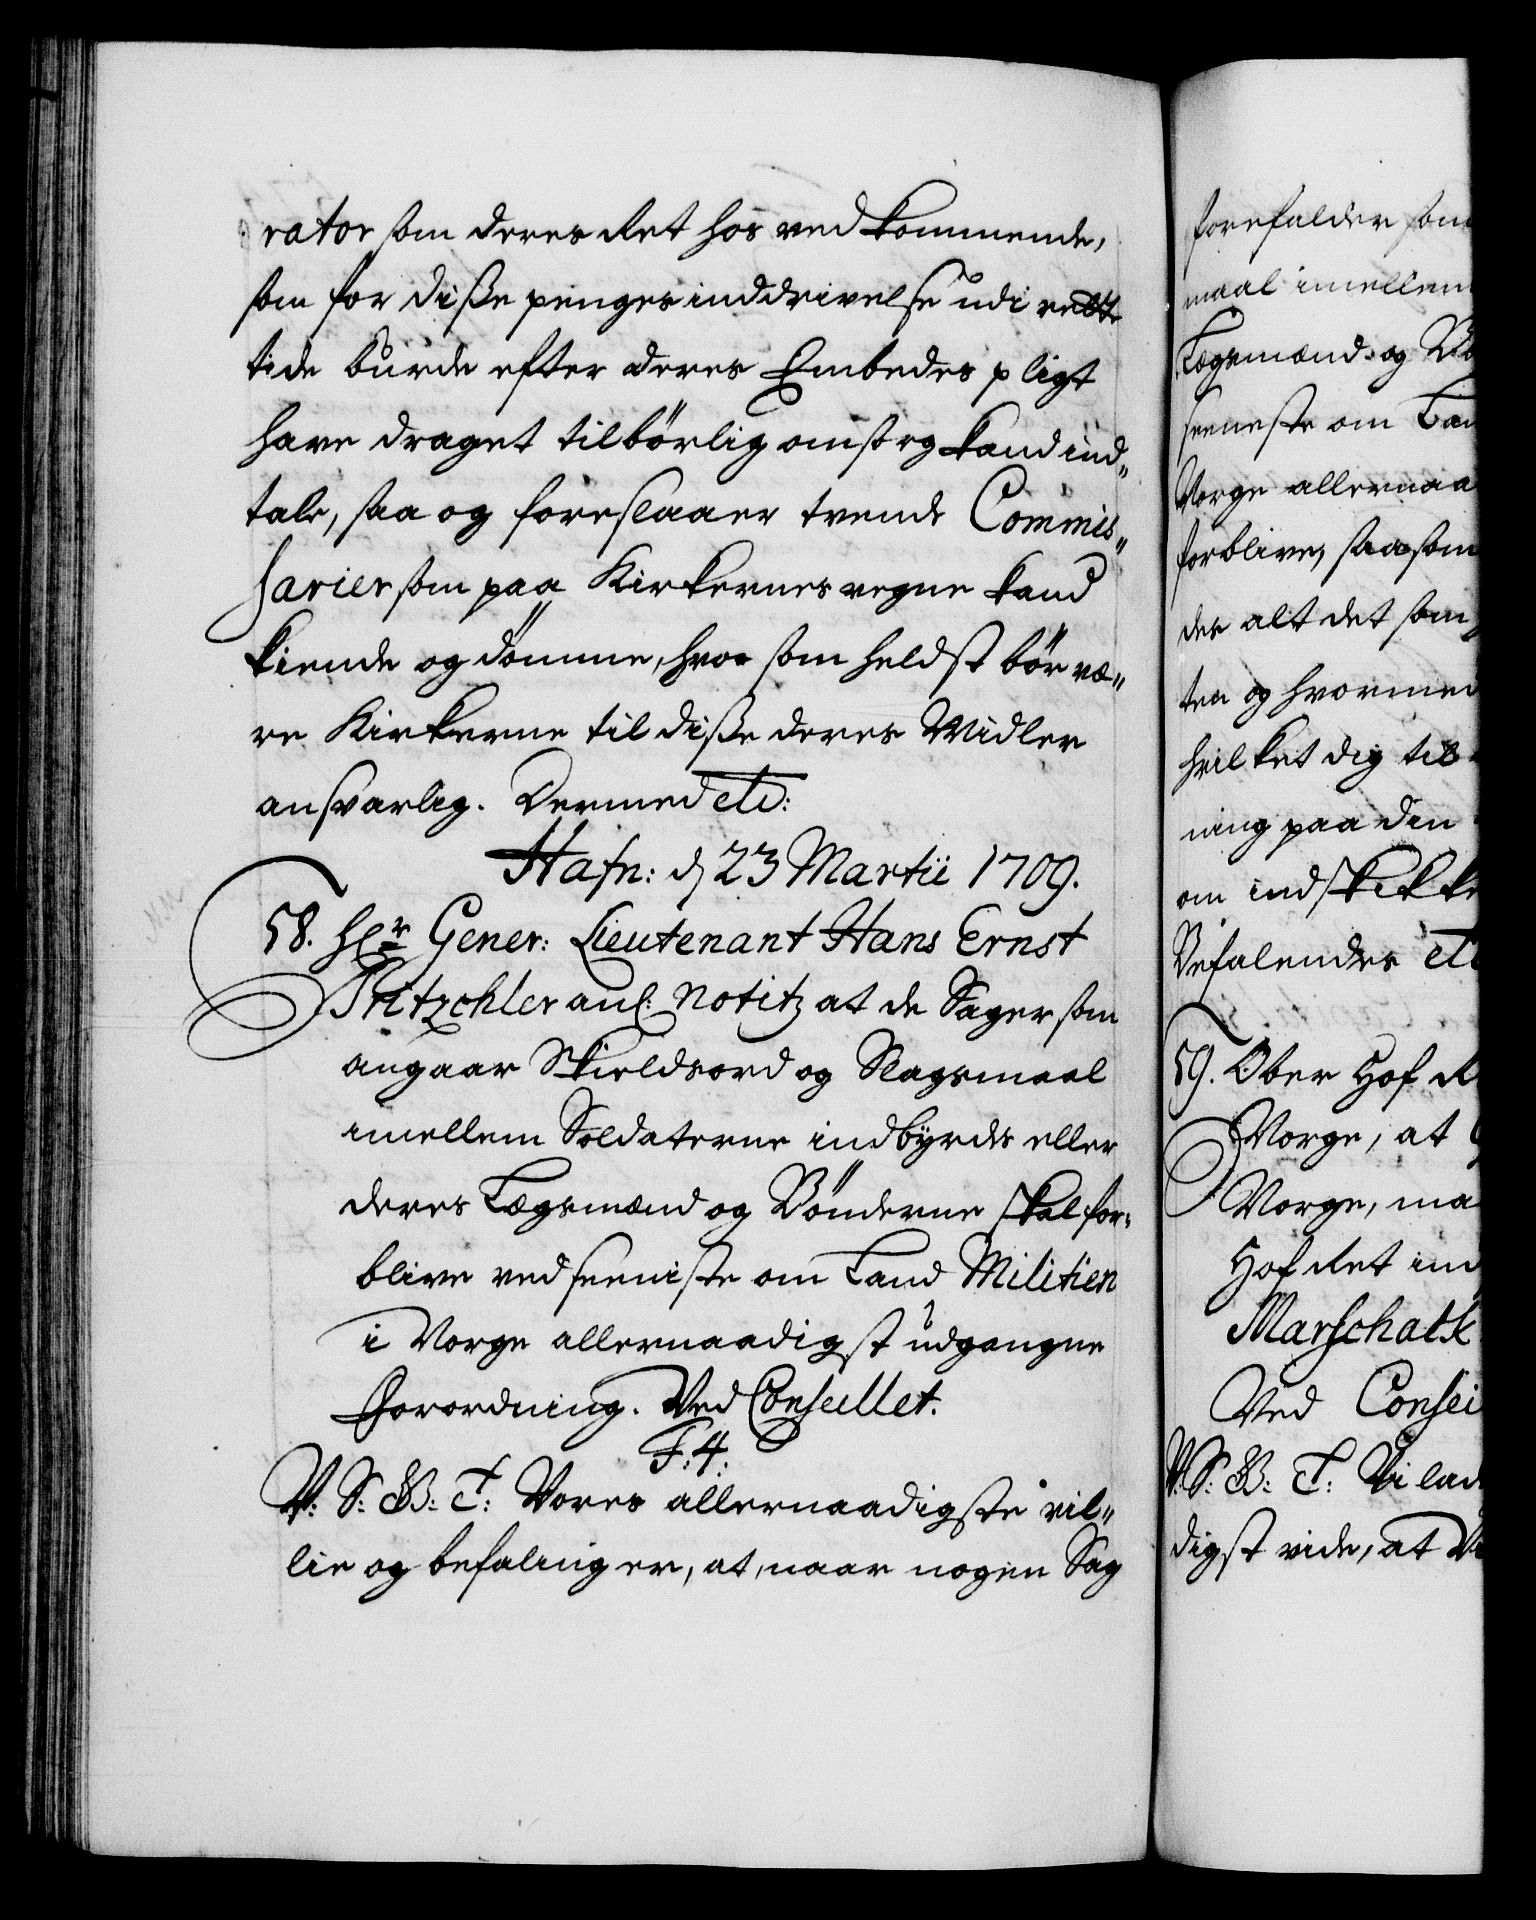 rator som deres Ret hos vedkommende,
som for disse penges inddrivelse udi rette
tide burde efter deres Embedes pligt
have draget tilbørlig omsorg kand ind„
tale, saa og foreslaaer tvende Commis„
sarier som paa Kirkernes vegne kand
kiende og dømme, hvor som heldst bør væ„
re Kirkerne til disse deres Midler
ansvarlig. Dermed etc:
Hafn: d 23 Martii 1709.
58. Hr Gener: Lieutenant Hans Ernst
Tritzchler anl: Notitz at de Sager som
angaar Skieldsord og Slagsmaal
imellem Soldaterne indbyrds eller
deres Lægsmænd og Bønderne skal for„
blive ved seeniste om Land Militien
i Norge allernaadigst udgangne
Forordning. Ved Conseillet.
F: 4:
V: S: G: T: Vores allernaadigste vil„
lie og befaling er, at, naar nogen Sag
forefalder som
maal imellem
Lægsmænd og Bø
seeneste om Lan
Norge allernaa
forblive, saasom
der alt det som
ten og hvormed
hvilket dig til
ning paa din
om indskikke
Befalendes etc
59. Ober Hof R
Norge, at
Norge, ma
Hof Ret ind
Marschalk
Ved Consei
V: S: G: T: Vi lad
digst vide, at Vi